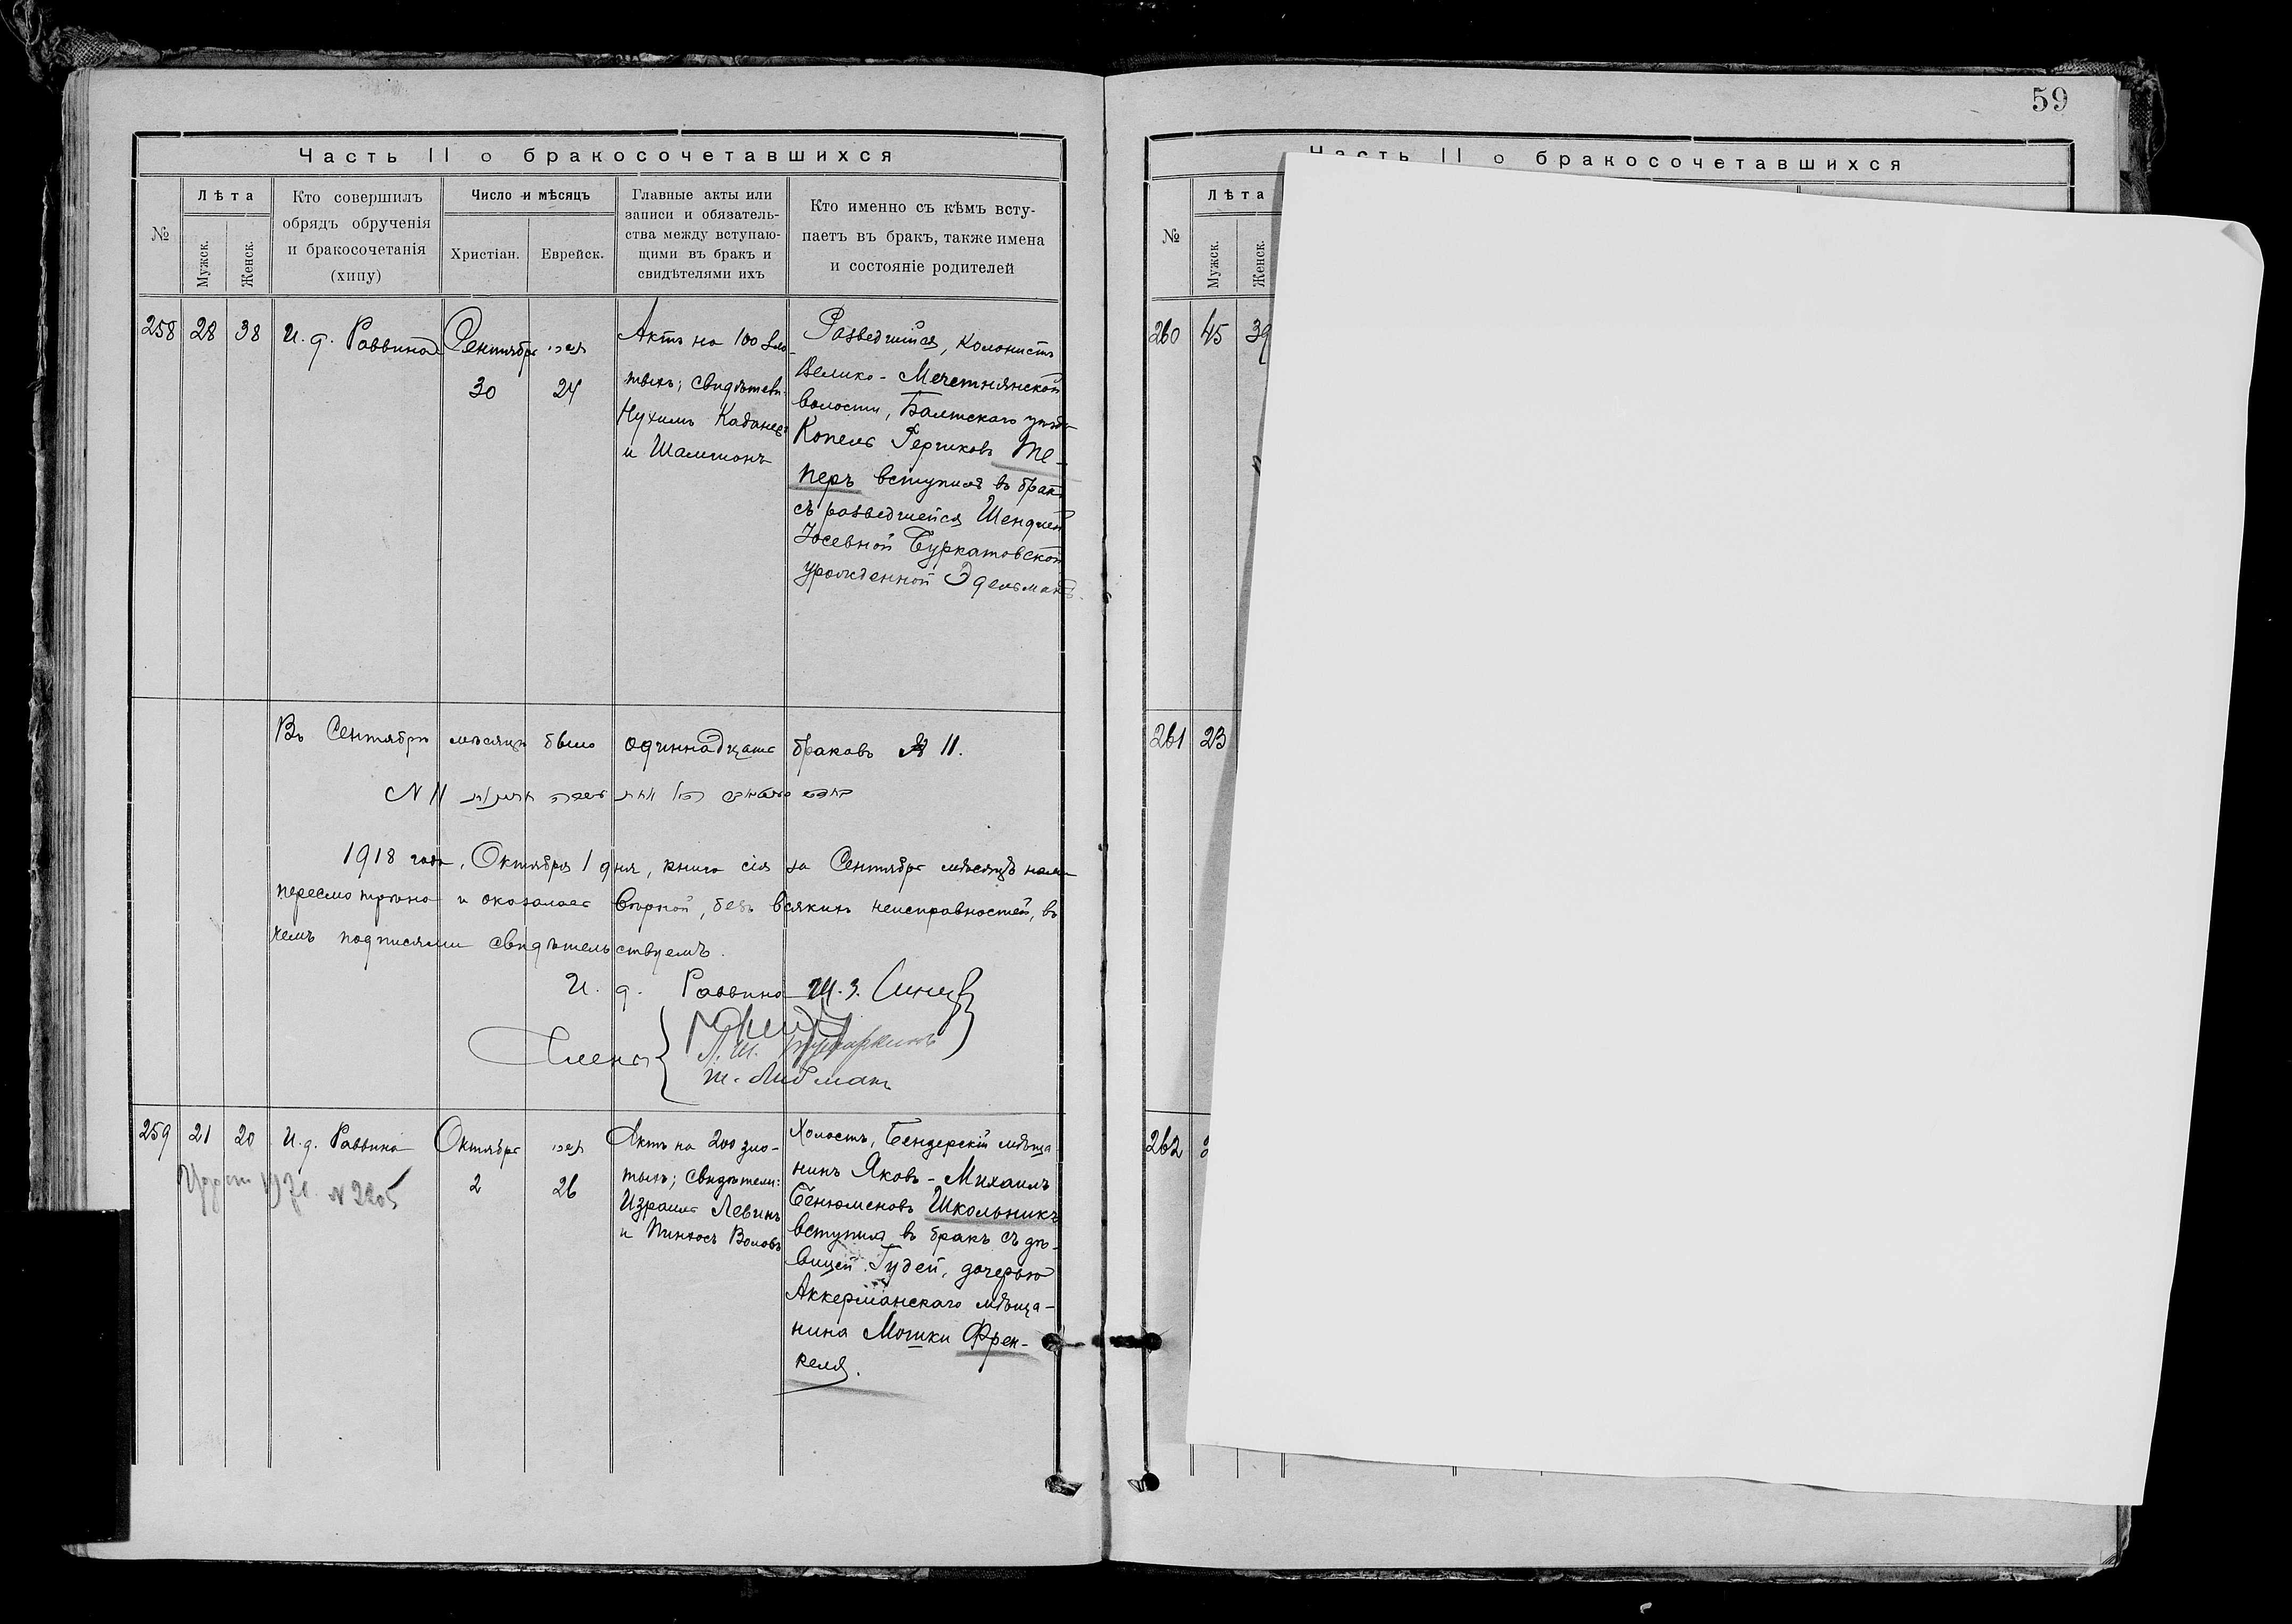 59
Часть II о бракосочетавшихся
№
Лѣта
Мужск.
Женск.
Кто совершилъ
обрядъ обрученія
и бракосочетанія
(хипу)
Число и мѣсяцъ
Христіан.
Еврейск.
Главные акты или
записи и обязатель-
ства между вступаю-
щими въ бракъ и
свидѣтелями ихъ
Кто именно съ кѣмъ всту-
паетъ въ бракъ, также имена
и состояніе родителей
258 28 38
И. д. Раввина
Сентября
30
תשרי
24
Актъ на 100 зло-
тыхъ; свидѣтели:
Нухимъ Кабанев
и Шамшонъ
Разведшійся, колонистъ
Велико-Мечетнянской
волости, Балтскаго уѣзда
Копель Герчиковъ Те-
перъ вступилъ въ бракъ
съ разведшейся Шендлей
Іосевной Буркатовской
урожденной Эдельманъ.
Въ Сентябрѣ мѣсяцѣ было одиннадцать браковъ № 11.
N 11
1918 года, Октября 1 дня, книга сія за Сентябрь мѣсяцъ нами
пересмотрѣна и оказалась вѣрной, безъ всякихъ неисправностей, въ
чемъ подписями свидѣтельствуемъ.
И. д. Раввина
Члены
259 21 20
И. д. Раввина
Октября
2
תשרי
26
Актъ на 200 зло-
тыхъ; свидѣтели:
Израиль Левинъ
и Пинхосъ Воловъ
Холостъ, Бендерскій мѣща
нинъ Яковъ-Михаилъ
Бенюменовъ Школьникъ
вступилъ въ бракъ съ дѣ-
вицей Гудей, дочерью
Аккерманскаго мѣща-
нина Мошки Френ-
келя.
N 2205
Часть II о бракосочетавшихся
№
Лѣта
Мужск.
Женск.
260 45 39
261 23
262